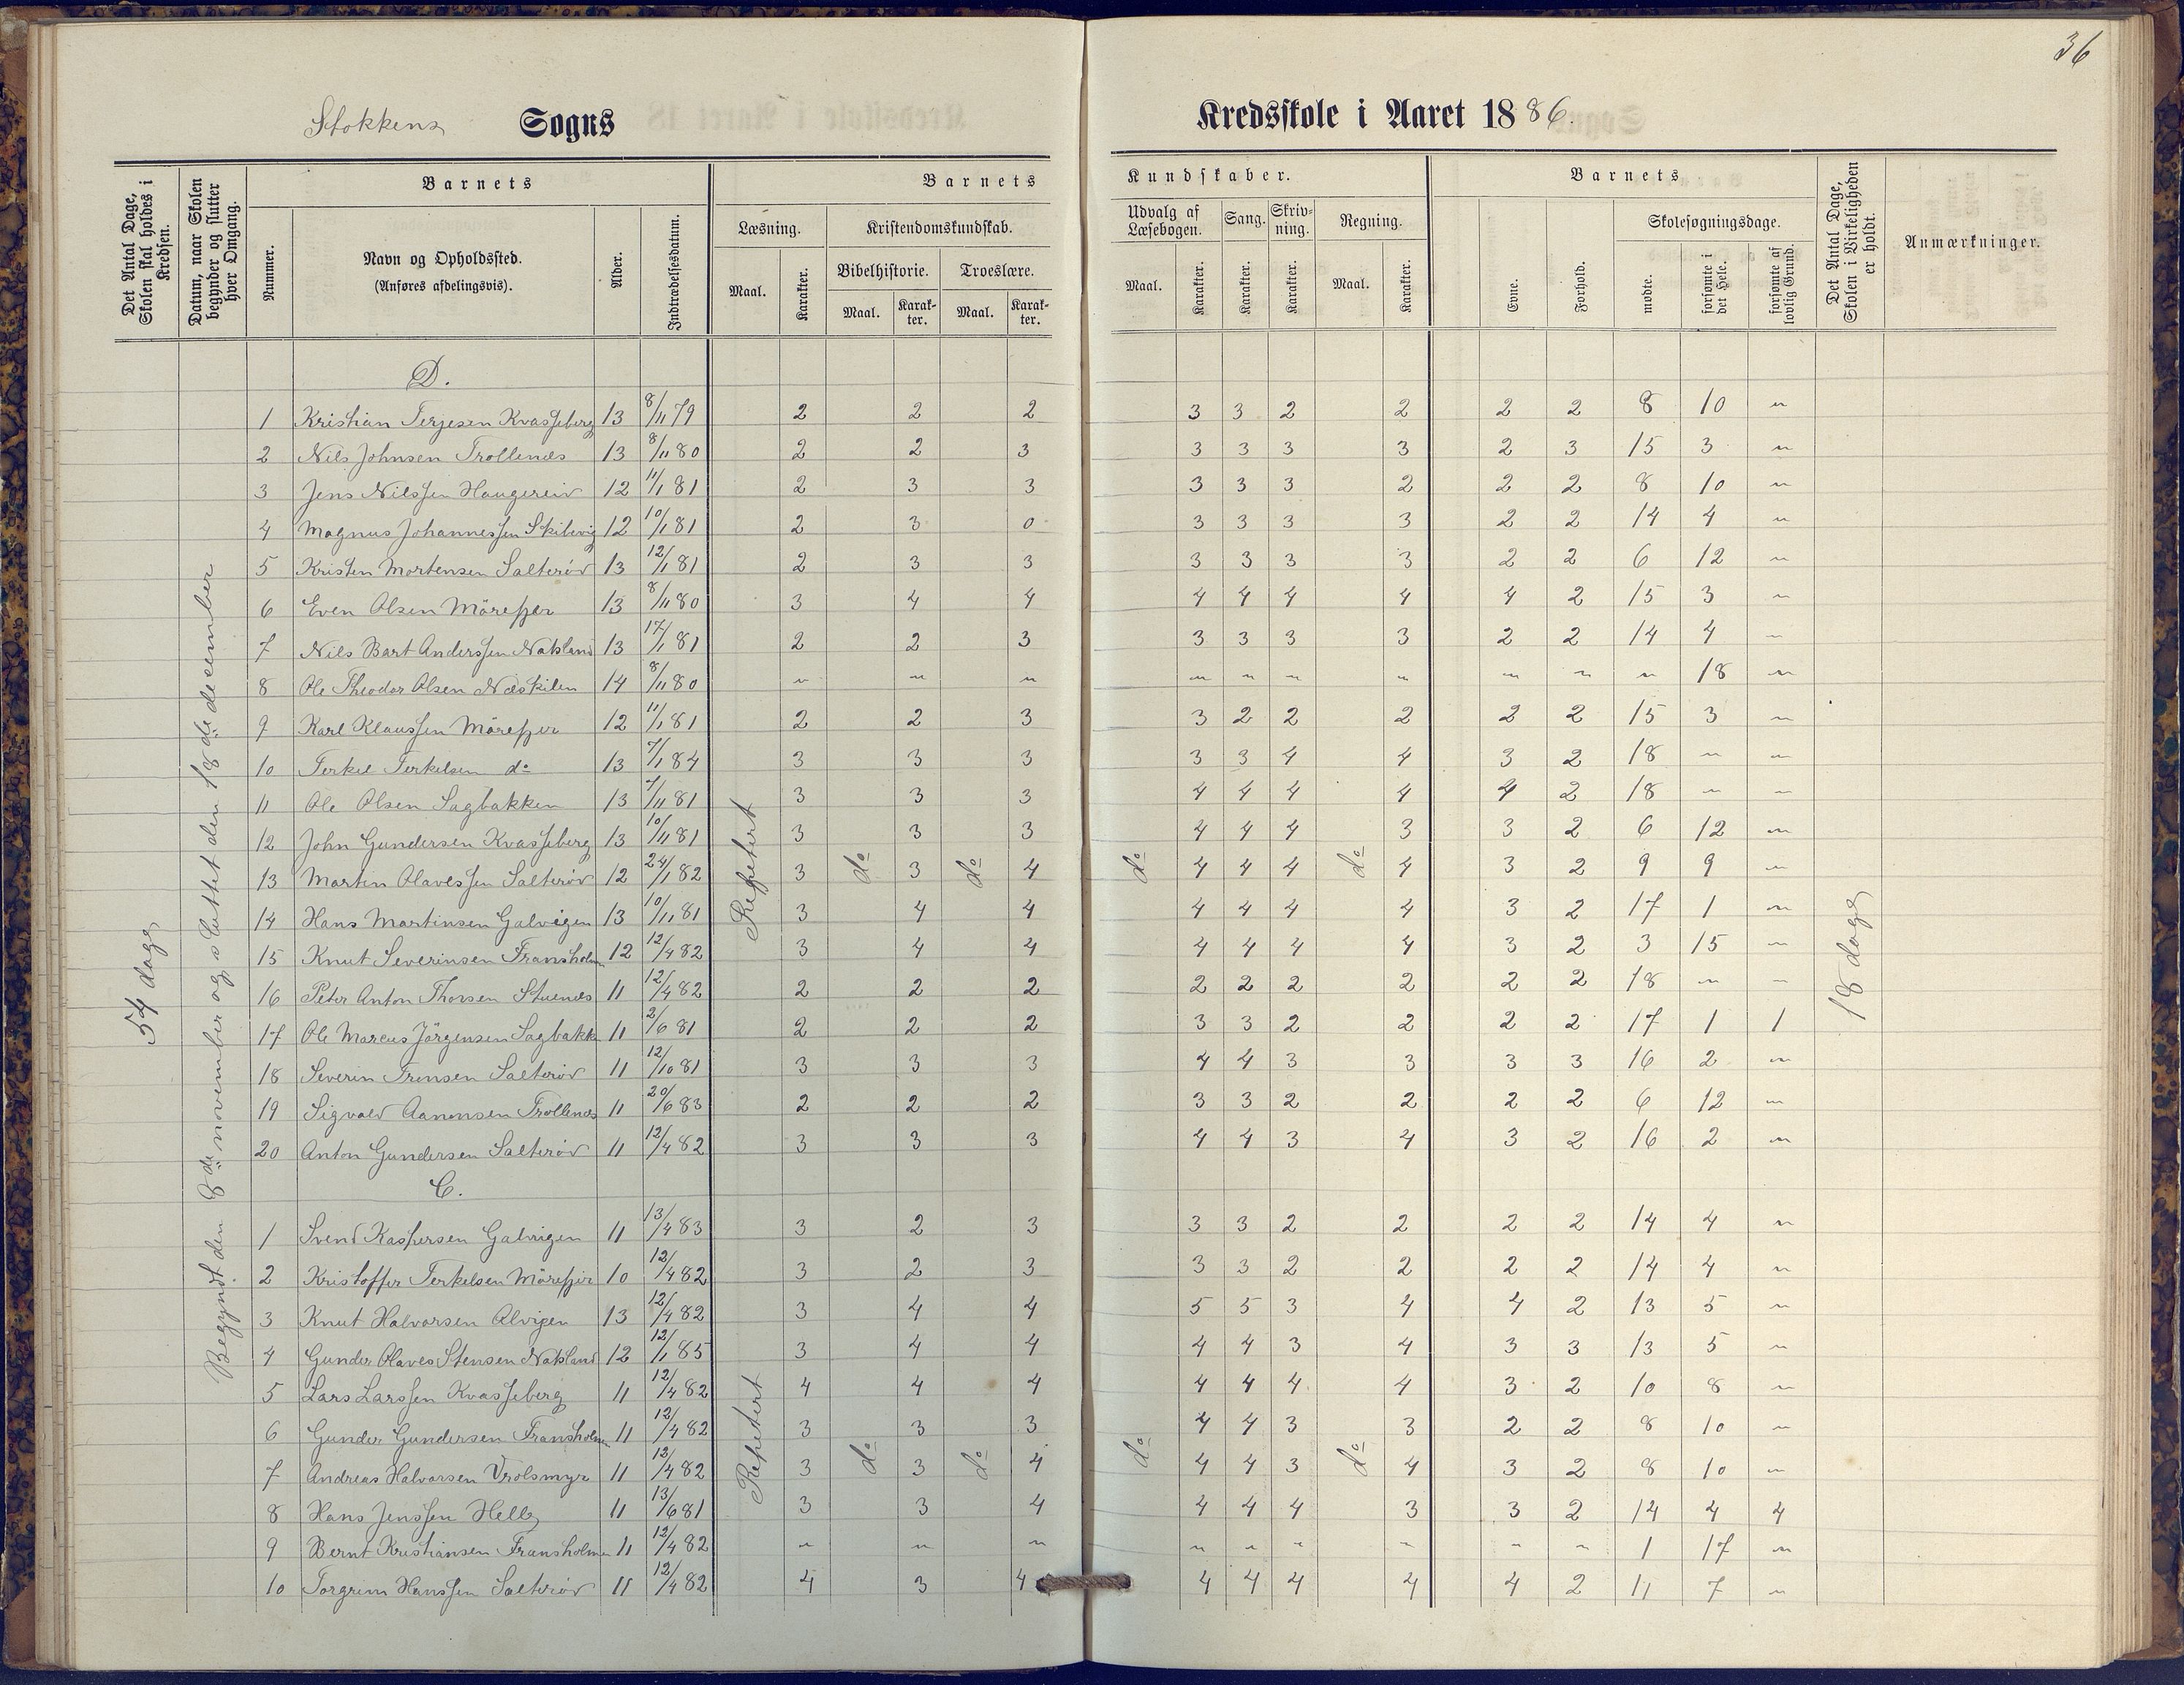 36
Stokkens Sogns Kredsskole i Aaret 1886.
Det Antal Dage, Skolen skal holdes i Kredsen.
Datum, naar Skolen begynder og slutter hver Omgang.
Barnets
Nummer.
Navn og Opholdssted.
(Anføres afdelingsvis).
Alder.
Indtrædelsesdatum.
Barnets Kundskaber.
Læsning.
Maal. Karakter.
Kristendomskundskab.
Bibelhistorie. Troeslære.
Maal. Karakter. Maal. Karakter.
Udvalg af Læsebogen. Sang. Skrivning. Regning.
Maal. Karakter. Karakter. Karakter. Maal. Karakter.
Barnets
Evne. Forhold.
Skolesøgningsdage.
mødte. forsømte i det Hele. forsømte af lovlig Grund.
Det Antal Dage, Skolen i Virkeligheden er holdt.
Anmærkninger.
54 dage
Begyndt den 8de november og sluttet den 18de december
18 dage
D.
Repetert do do do do
1 Kristian Terjesen Kvasseberg 13 8/11 79 2 2 2 3 3 2 2 2 2 8 10 "
2 Nils Johnsen Trollenes 13 8/11 80 2 2 3 3 3 3 3 2 3 15 3 "
3 Jens Nilssen Haugereid 12 11/1 81 2 3 3 3 3 3 2 2 2 8 10 "
4 Magnus Johannessen Skibvig 12 10/1 81 2 3 0 3 3 3 3 2 2 14 4 "
5 Kristen Mortensen Salterød 13 12/1 81 2 3 3 3 3 3 3 2 2 6 12 "
6 Even Olsen Mörefjer 13 8/11 80 3 4 4 4 4 4 4 4 2 15 3 "
7 Nils Bart Anderssen Natsland 13 17/1 81 2 2 3 3 3 3 3 2 2 14 4 "
8 Ole Theodor Olsen Næskilen 14 8/11 80 " " " " " " " " " " 18 "
9 Karl Klaussen Mörefjer 12 11/1 81 2 2 3 3 2 2 2 2 2 15 3 "
10 Terkel Terkelsen do 13 7/1 84 3 3 3 3 3 4 4 3 2 18 " "
11 Ole Olsen Sagbakken 13 7/11 81 3 3 3 4 4 4 4 4 2 18 " "
12 John Gundersen Kvasseberg 13 10/11 81 3 3 3 4 4 4 3 3 2 6 12 "
13 Marten Olavessen Salterød 12 24/1 82 3 3 4 4 4 4 4 3 2 9 9 "
14 Hans Martinsen Galvigen 13 10/11 81 3 4 4 4 4 4 4 3 2 17 1 "
15 Knut Severinsen Fransholm 12 12/4 82 3 4 4 4 4 4 4 3 2 3 15 "
16 Peter Anton Thorsen Stuenes 11 12/4 82 2 2 2 2 2 2 2 2 2 18 " "
17 Ole Marcus Jörgensen Sagbakk 11 2/6 81 2 2 2 3 3 2 2 2 2 17 1 1
18 Severin Trensen Salterød 11 12/10 81 3 3 3 4 4 3 3 3 3 16 2 "
19 Sigvald Aanonsen Trollenes 11 20/6 83 2 2 2 3 3 2 2 2 2 6 12 "
20 Anton Gundersen Salterød 11 12/4 82 3 3 3 4 4 3 4 3 2 16 2 "
C.
Repetert do do do do
1 Svend Kaspersen Galvigen 11 13/4 83 3 2 3 3 3 2 2 2 2 14 4 "
2 Kristoffer Terkelsen Mörefjer 10 12/4 82 3 2 3 3 3 2 2 2 2 14 4 "
3 Knut Halvorsen Alvigen 13 12/4 82 3 4 4 5 5 3 4 4 2 13 5 "
4 Gunder Olaves Stensen Natsland 12 12/1 85 3 4 4 4 4 3 4 3 3 13 5 "
5 Lars Larssen Kvasseberg 11 12/4 82 4 4 4 4 4 4 4 3 2 10 8 "
6 Gunder Gundersen Fransholm 11 12/4 82 3 3 3 4 4 3 3 2 2 8 10 "
7 Andreas Halvorsen Vrolsmyr 11 12/4 82 3 3 4 4 4 3 4 3 2 8 10 "
8 Hans Jenssen Helle 11 13/6 81 3 3 4 4 4 4 3 3 2 14 4 4
9 Bernt Kristiansen Fransholmen 11 12/4 82 " " " " " " " " " 1 17 "
10 Torgrim Hanssen Salterød 11 12/4 82 4 3 4 4 4 4 4 4 2 11 7 "